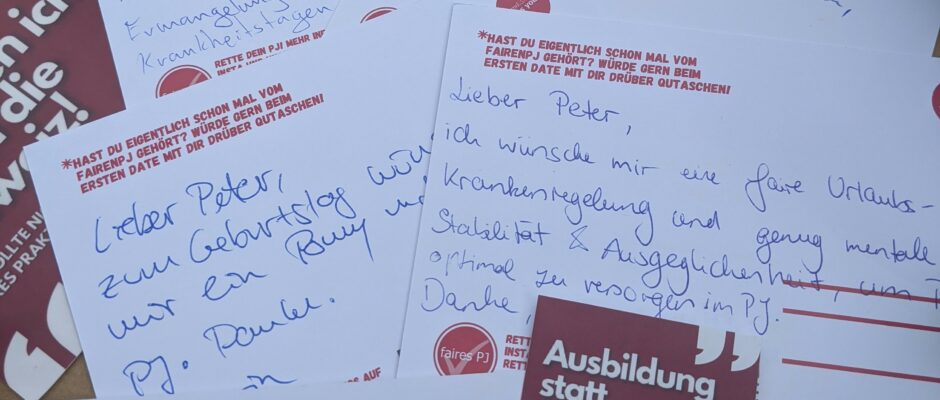 Ermangelung
Krankheitstagen
RETTE DEIN PJ! MEHR
*HAST DU EIGENTLICH SCHON MAL VOM
FAIRENPJ GEHÖRT? WÜRDE GERN BEIM
ERSTEN DATE MIT DIR DRÜBER QUTASCHEN!
Lieber Peter,
zum Geburtstag
mir ein
PJ. Danke.
*HAST DU EIGENTLICH SCHON MAL VOM
FAIRENPJ GEHÖRT? WÜRDE GERN BEIM
ERSTEN DATE MIT DIR DRÜBER QUTASCHEN!
Lieber Peter,
ich wünsche mir eine faire Urlaubs-
Krankenregelung und genug mentale
Stabilität & Ausgeglichenheit, um
optimal zu versorgen im PJ.
Danke,
faires PJ
Ausbildung
statt